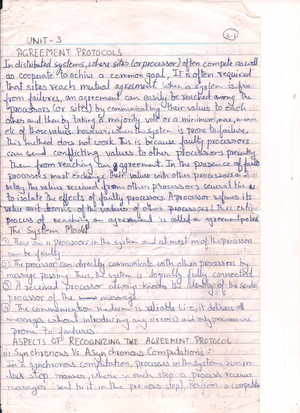 3.1
UNIT - 3
AGREEMENT PROTOCOLS
In distributed systems, where sites (or processor) often compete as well
as cooperate to achive a common goal, It is often required
that sites reach mutual agreement. When a system is free
from failures, an agreement can easily be reached among the
processors (or sites) by communicating their values to each
other and then by taking a majority vote or a minimum, max, mean
etc of those values. however, when the system is prone to failure
this method does not work. This is because faulty processors
can send conflicting values to other processors preventing
them from reaching an agreement. In the presence of faults
processors must exchange their values with other processors and
relay the values received from other processors several times
to isolate the effects of faulty processors. A processor refines its
value as it learns of the values of other processors (This entire
process of reaching an agreement is called an agreement protocol
The System Model
① There are n processors in the system and at most m of the processors
can be faulty
② The processor can directly communicate with other processors by
message passing. Thus, the system is logically fully connected
③ A received processor always knows the identity of the sender
processor of the message
④ The communication medium is reliable (i.e, it delivers all
messages without introducing any errors) and only processors are
prone to failures
ASPECTS OF RECOGNIZING THE AGREEMENT PROTOCOL
(i) Synchronous Vs Asynchronous Computations :
In a synchronous computation, processes in the system run in
lock step manner, where in each step a process receives
messages (sent to it in the previous step), performs a computation